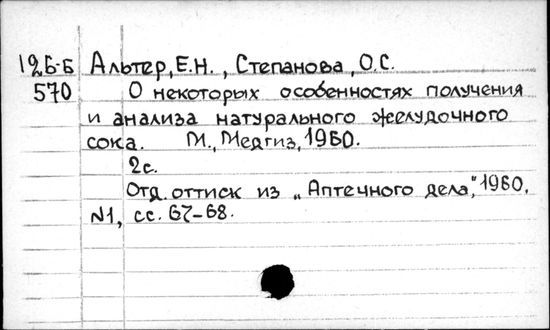 126-Б Альтер, Е.Н., Степанова, О.С.
570 О некоторых особенностях получения
и анализа натурального желудочного
сока. М., Медгиз, 1960.
2с.
Отд. оттиск из „Аптечного дела", 1960,
N1, сс. 67-68.